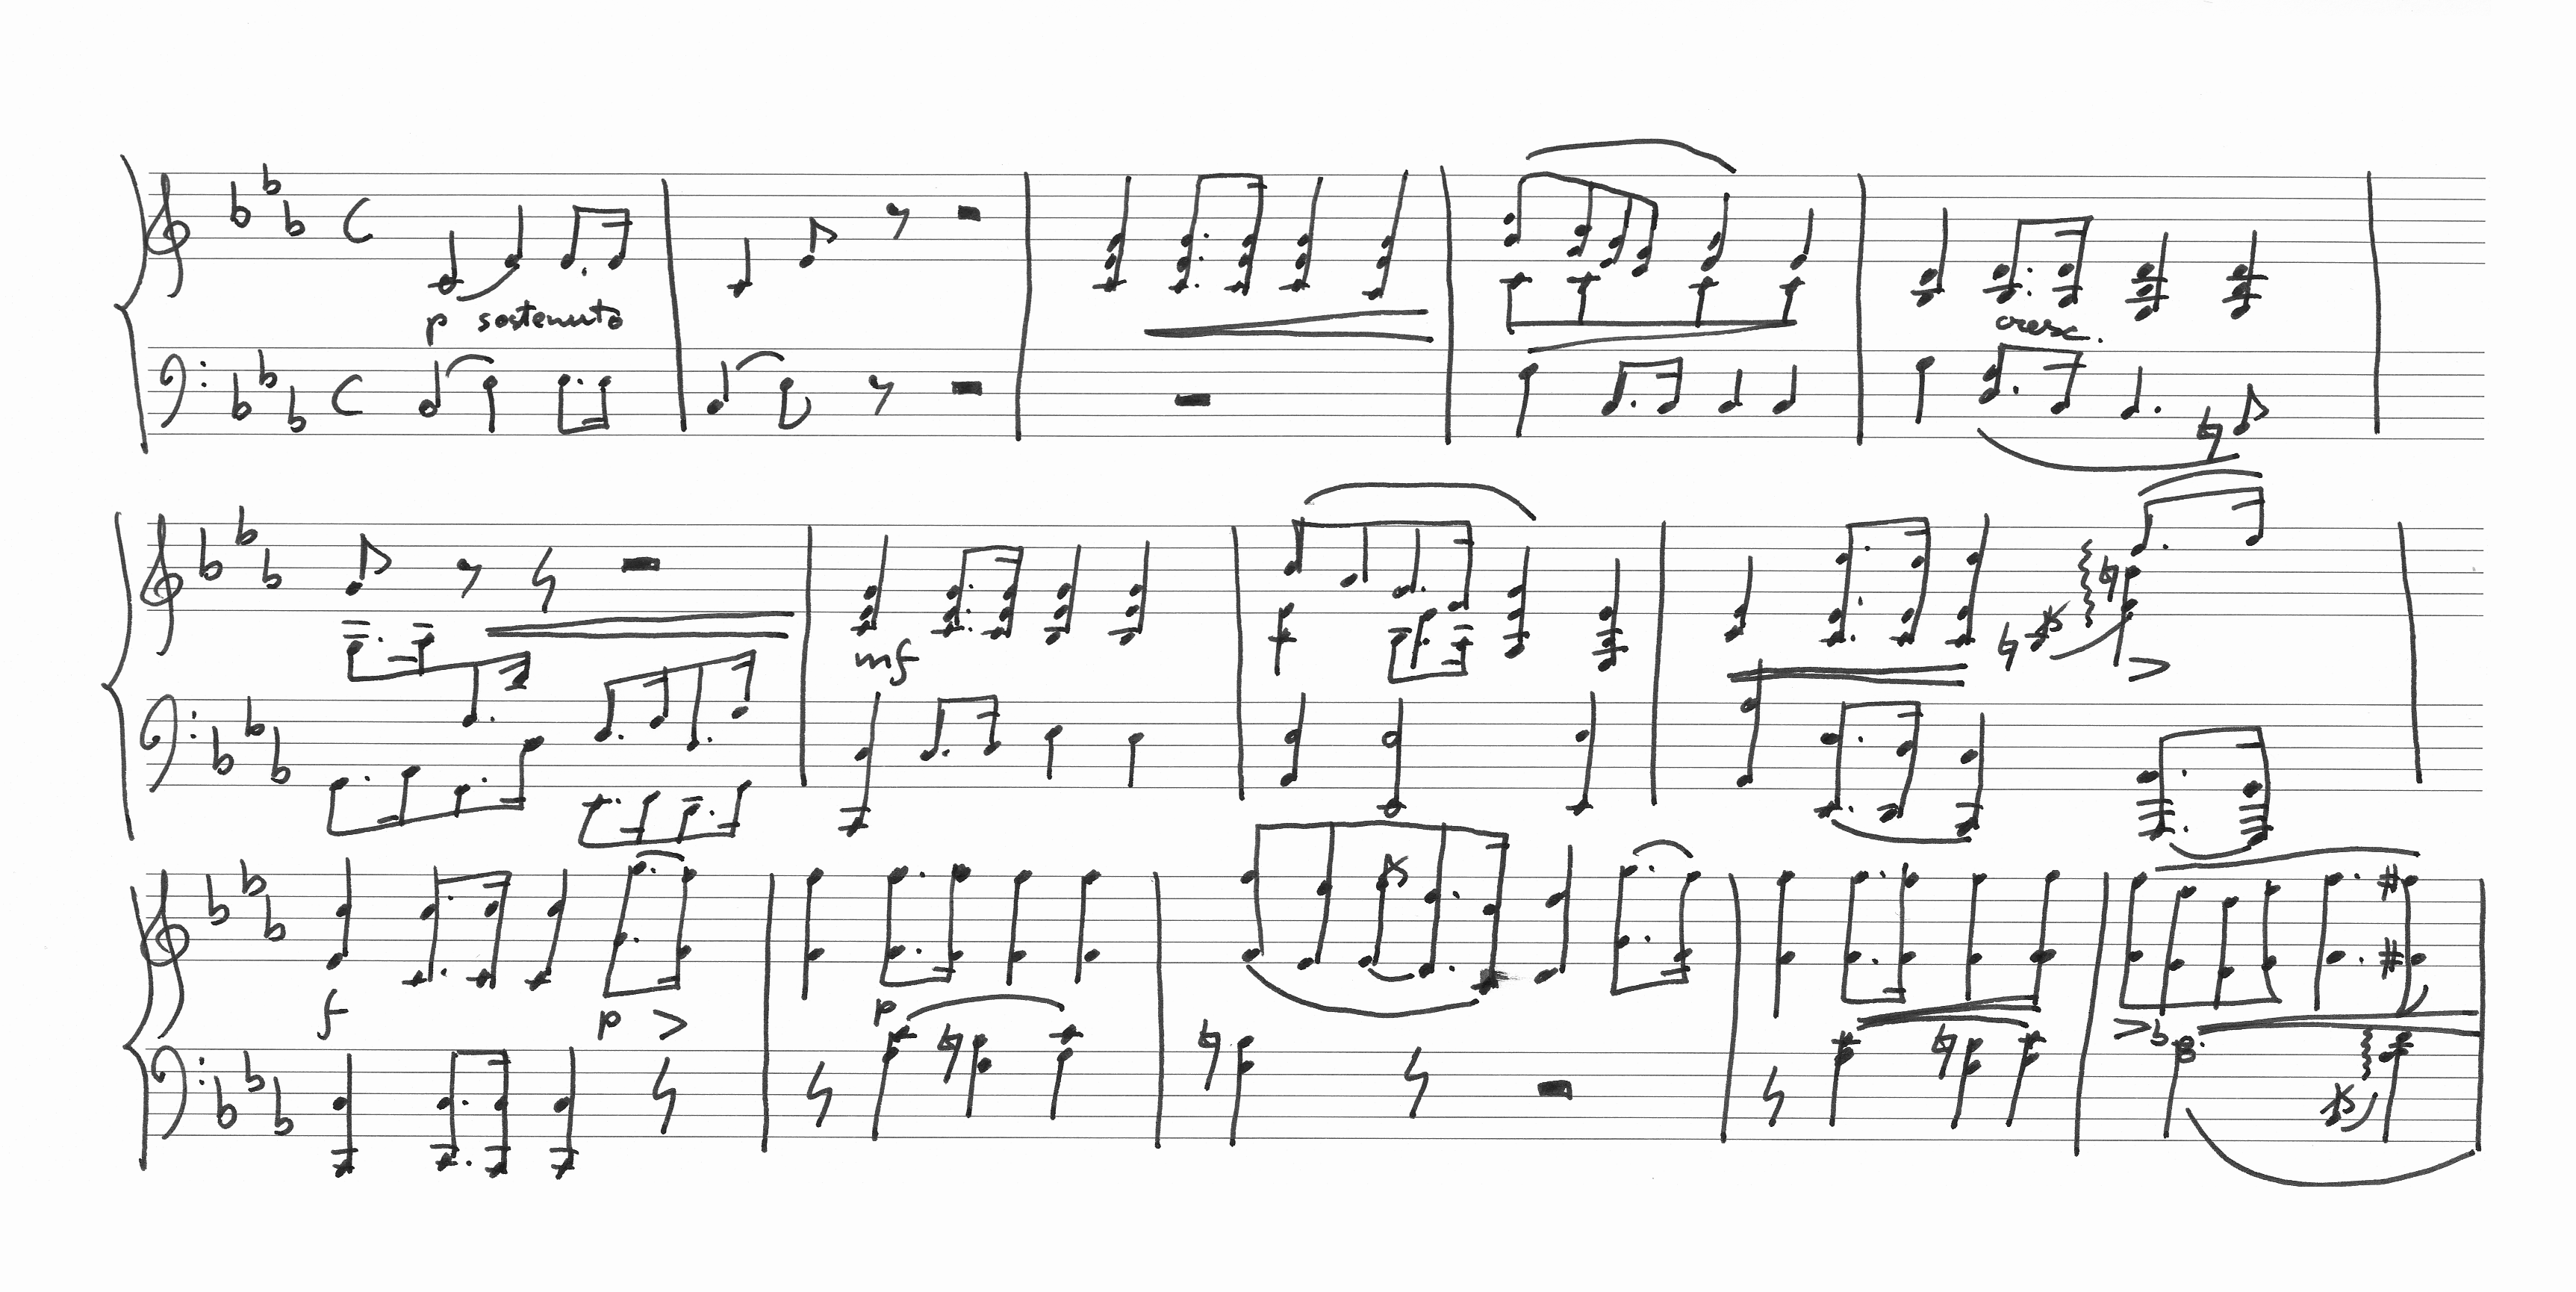 p sostenuto
cresc.
mf
f
f
p
p